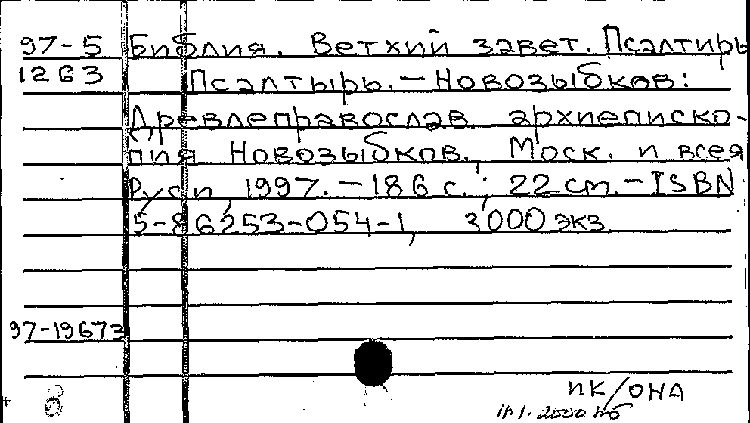 97-5 Библия. Ветхий завет. Псалтирь
1263 Псалтырь. — Новозыбков:
Древлеправослав. архиеписко-
пия Новозыбков., Моск. и всея
Руси, 1997. — 186 с.; 22 см. — ISBN
5-86253-054-1, 3000 экз.
97-19673
ПК/ОНА